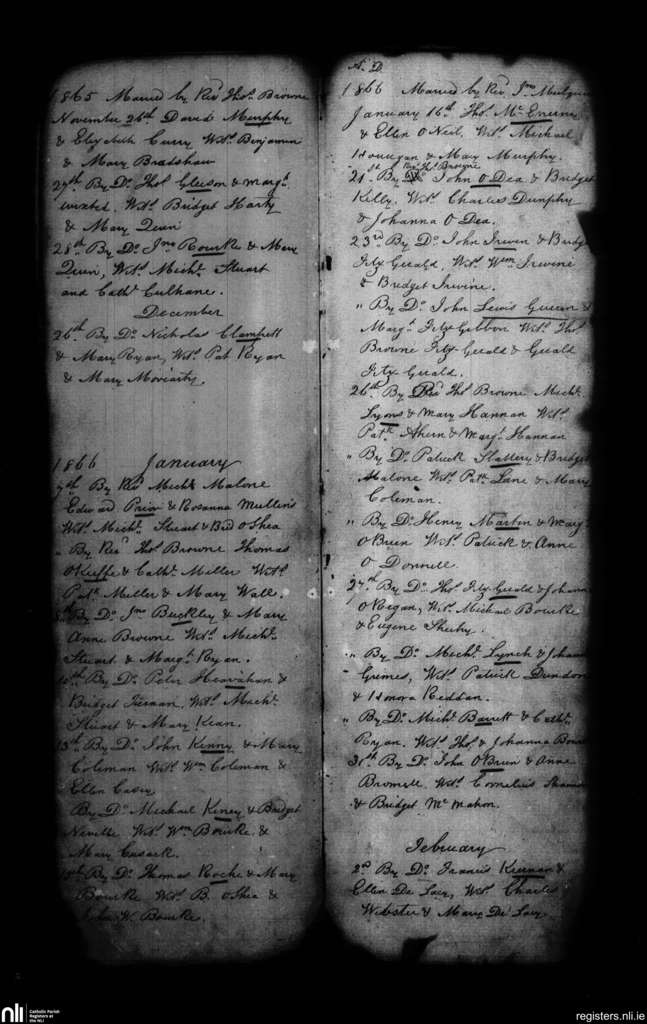 1865 Married by Revd Thos. Browne
November 26th David Murphy
& Elizabeth Curry Wits. Benjamin
& Mary Bradshaw
27th By Do. Thos. Gleeson & Margt.
Wits. Bridget Harty
& Mary Quin
28th By Do. Jno Rourke & Mary
Quin, Wits. Michl. Stuart
and Cathe. Culhane.
December
26th By Do. Nicholas Clampett
& Mary Ryan, Wits. Pat Ryan
& Mary Moriarty.
1866 January
7th By Revd Michl. Malone
Edward Price & Rosanna Mullins
Wits. Michl. Stuart & Bid O Shea
" By Revd Thos. Browne Thomas
O Keeffe & Cathe. Miller Wits.
Patk. Miller & Mary Wall.
By Do. Jno Buckley & Mary
Anne Browne Wits. Michl.
Stuart & Margt. Ryan.
By Do. Peter &
Bridget Wits. Michl.
Stuart & Mary Kean.
13th By Do. John Kenny & Mary
Coleman Wits. Wm Coleman &
Ellen Casey
By Do. Michael Kiney & Bridget
Neville Wits. Wm Bourke &
Mary Cusack.
15th By Do. Thomas Roche & Mary
Bourke Wits. B. O Shea &
John W. Bourke.
A. D.
1866 Married by Revd Jno
January 16th Thos. McEnerny
& Ellen O Neil, Wits. Michael
Hourigan & Mary Murphy.
Revd Thos Browne
21st By John O Dea & Bridget
Kelly. Wits. Charles Dunphy
& Johanna O Dea.
23rd By Do. John Irwin & Bridget
Fitz Gerald, Wits. Wm Irwine
& Bridget Irwine.
" By Do. John Lewis &
Margt. Fitz Gibbon Wits. Thos.
Browne Fitz Gerald & Gerald
Fitz Gerald.
26th By Revd Thos Browne Michl.
Lyons & Mary Hannan Wits.
Patk Ahern & Margt. Hannan
" By Do. Patrick Slattery & Bridget
Malone Wits. Patk. Lane & Mary
Coleman.
" By Do. Henry Martin & Mary
O Brien Wits. Patrick & Anne
O Donnell.
27th By Do. Thos. Fitz Gerald & Johanna
O Regan, Wits. Michael Bourke
& Eugene Sheehy.
" By Do. Michl. Lynch & Johanna
Grimes, Wits. Patrick Dundon
& Honora Reddan.
" By Do. Michl. Barrett & Cathe.
Ryan. Wits. Thos. & Johanna
31st By Do. John O Brien & Anne
Wits. Cornelius
& Bridget Mc Mahon.
February
2nd By Do. Francis Keenan &
Ellen De Lacy, Wits. Charles
Webster & Mary De Lacy
nli
Catholic Parish
Registers at
the NLI
registers.nli.ie